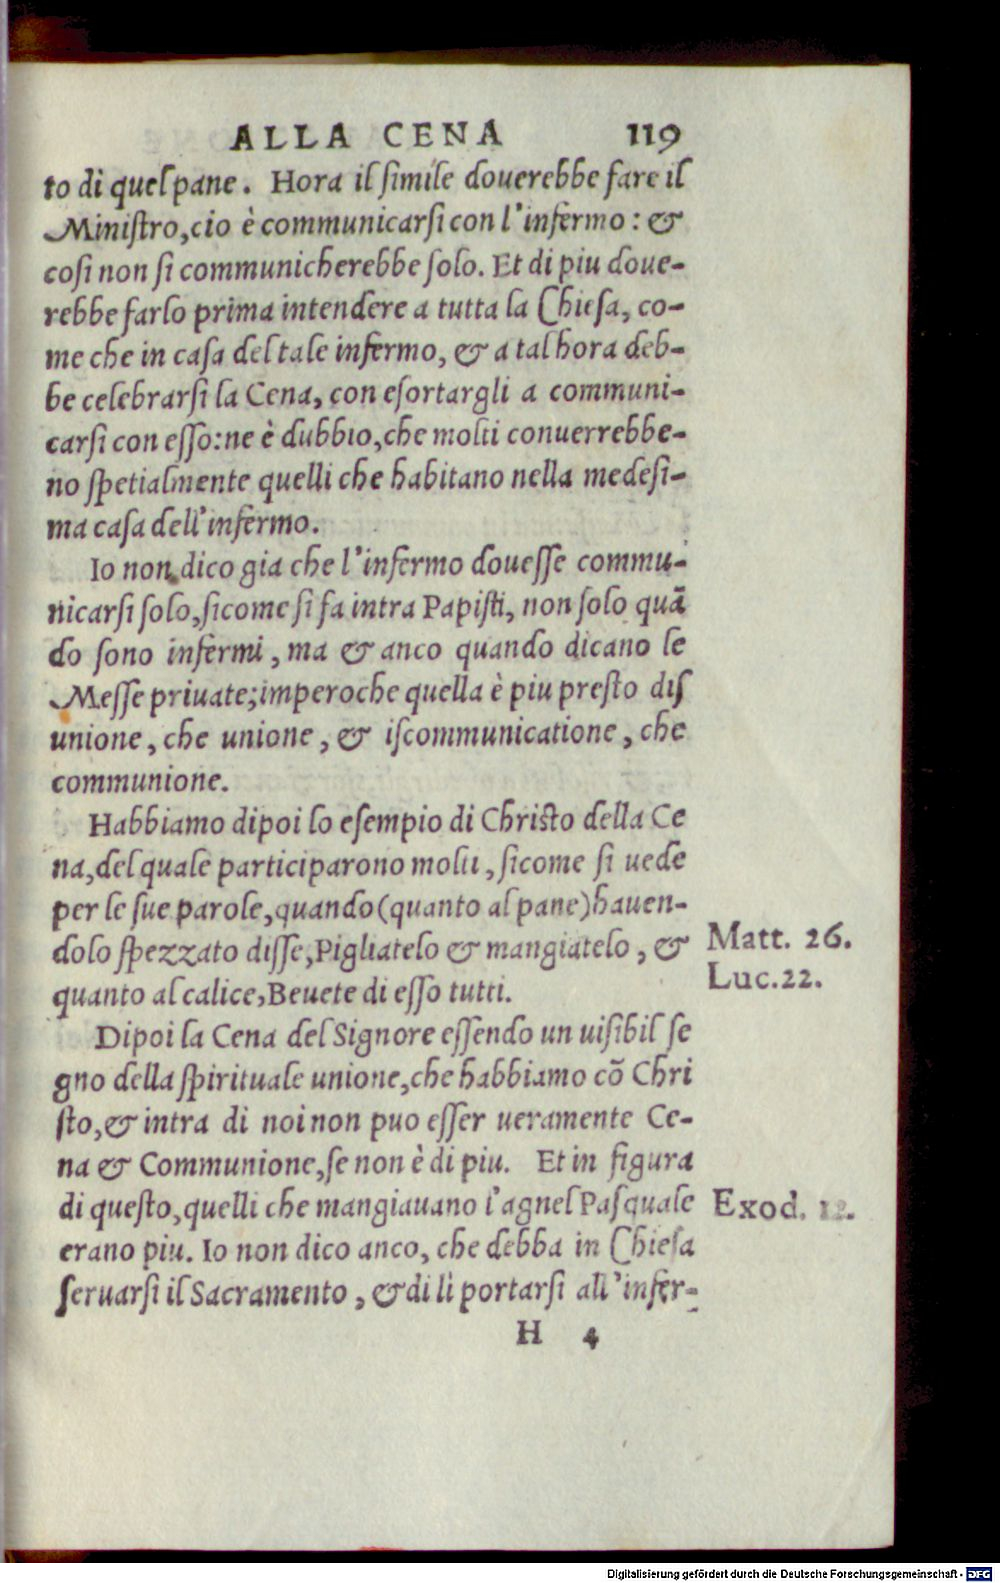 ALLA CENA 119
to di quel pane. Hora il simile douerebbe fare il
Ministro, cio è communicarsi con l'infermo: &
cosi non si communicherebbe solo. Et di piu doue-
rebbe farlo prima intendere a tutta la Chiesa, co-
me che in casa del tale infermo, & a tal hora deb-
be celebrarsi la Cena, con esortargli a communi-
carsi con esso: ne è dubbio, che molti conuerrebbe-
no spetialmente quelli che habitano nella medesi-
ma casa dell'infermo.
Io non dico gia che l'infermo douesse commu-
nicarsi solo, sicome si fa intra Papisti, non solo quā
do sono infermi, ma & anco quando dicano le
Messe priuate; imperoche quella è piu presto dis
unione, che unione, & iscommunicatione, che
communione.
Habbiamo dipoi lo esempio di Christo della Ce
na, del quale participarono molti, sicome si uede
per le sue parole, quando (quanto al pane) hauen-
dolo spezzato disse, Pigliatelo & mangiatelo, &
Matt. 26.
Luc. 22.
quanto al calice, Beuete di esso tutti.
Dipoi la Cena del Signore essendo un uisibil se
gno della spirituale unione, che habbiamo cō Chri
sto, & intra di noi non puo esser ueramente Ce-
na & Communione, se non è di piu. Et in figura
di questo, quelli che mangiauano l'agnel Pasquale
Exod. 12.
erano piu. Io non dico anco, che debba in Chiesa
seruarsi il Sacramento, & di lì portarsi all'infer-
H 4
Digitalisierung gefördert durch die Deutsche Forschungsgemeinschaft - DFG